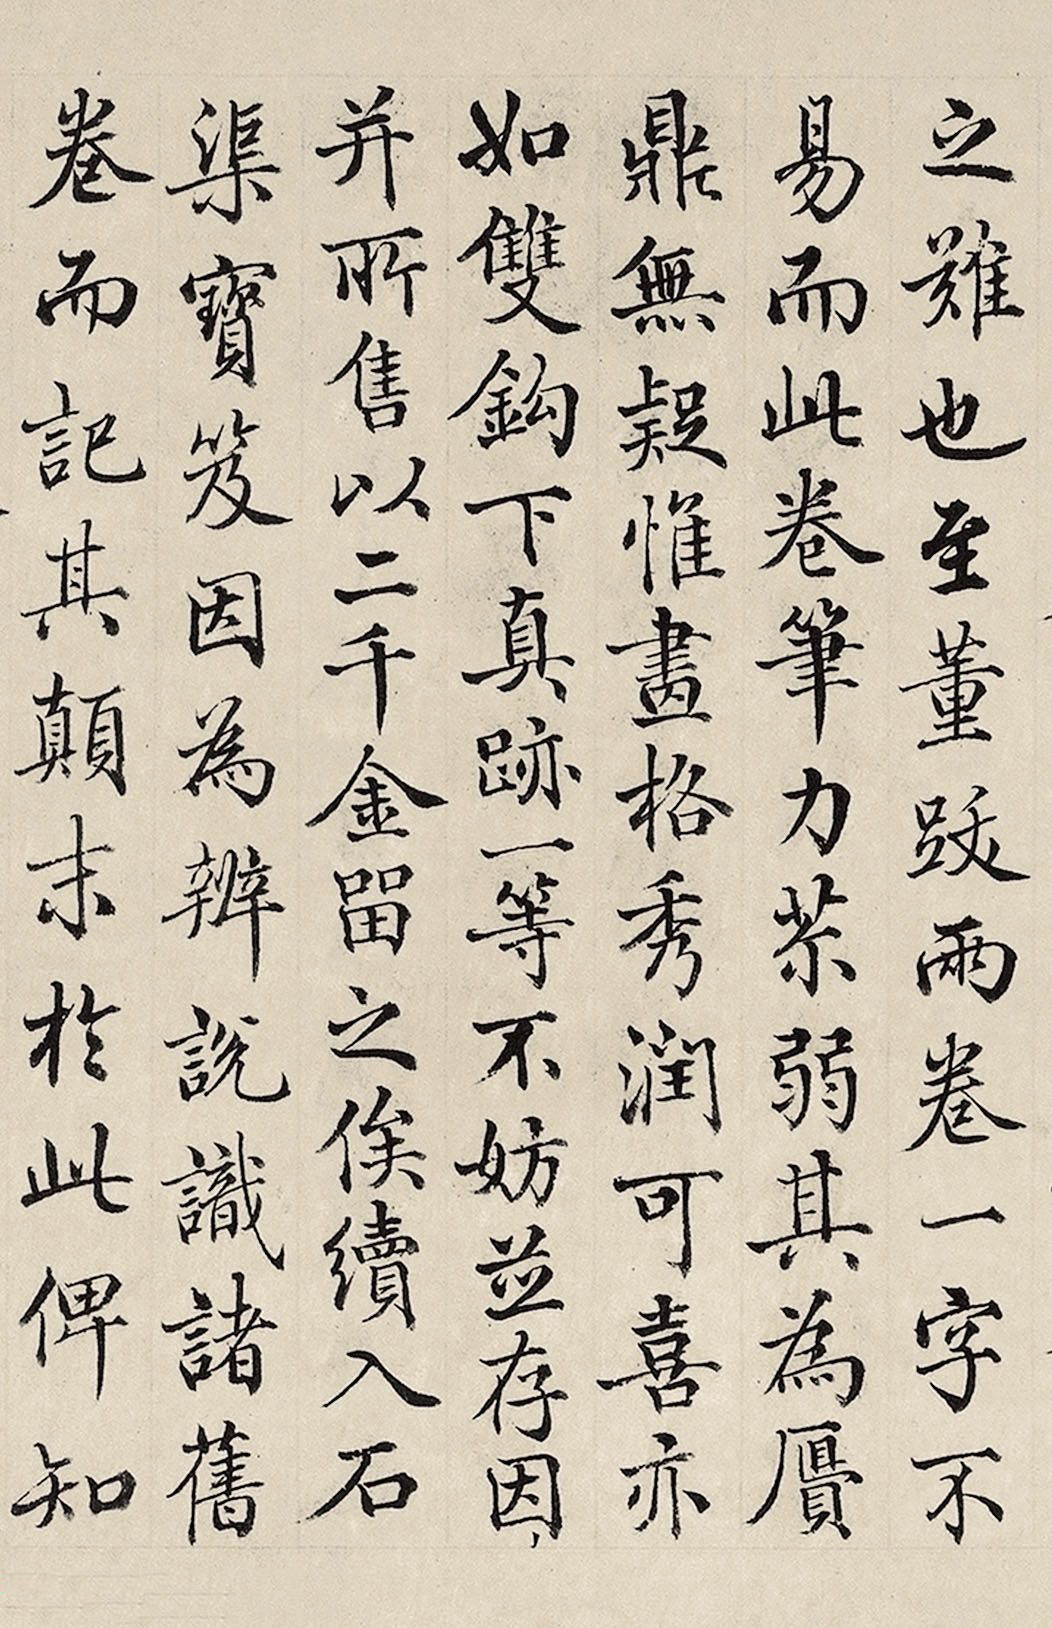 之難也至董跋兩卷一字不
易而此卷筆力茶弱其為贗
鼎無疑惟畫格秀潤可喜亦
如雙鈎下真跡一等不妨並存因
并所售以二千金留之俟續入石
渠寶笈因為辨說識諸舊
卷而記其顛末於此俾知